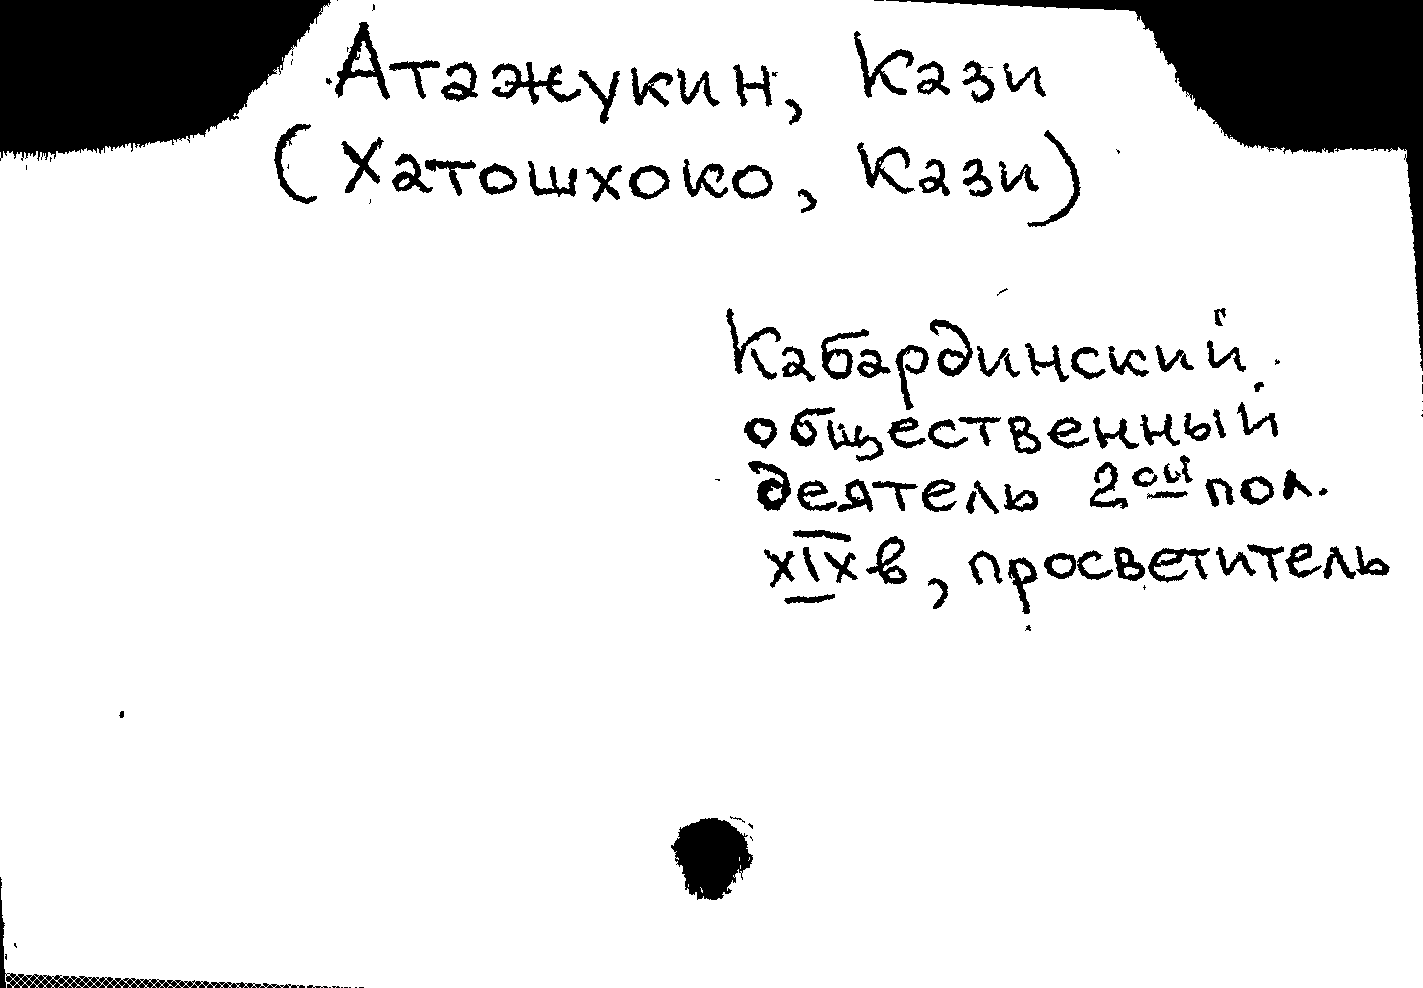 Атажукин, Кази
(Хатошхоко, Кази)
Кабардинский
общественный
деятель 2ой пол.
XIX в, просветитель